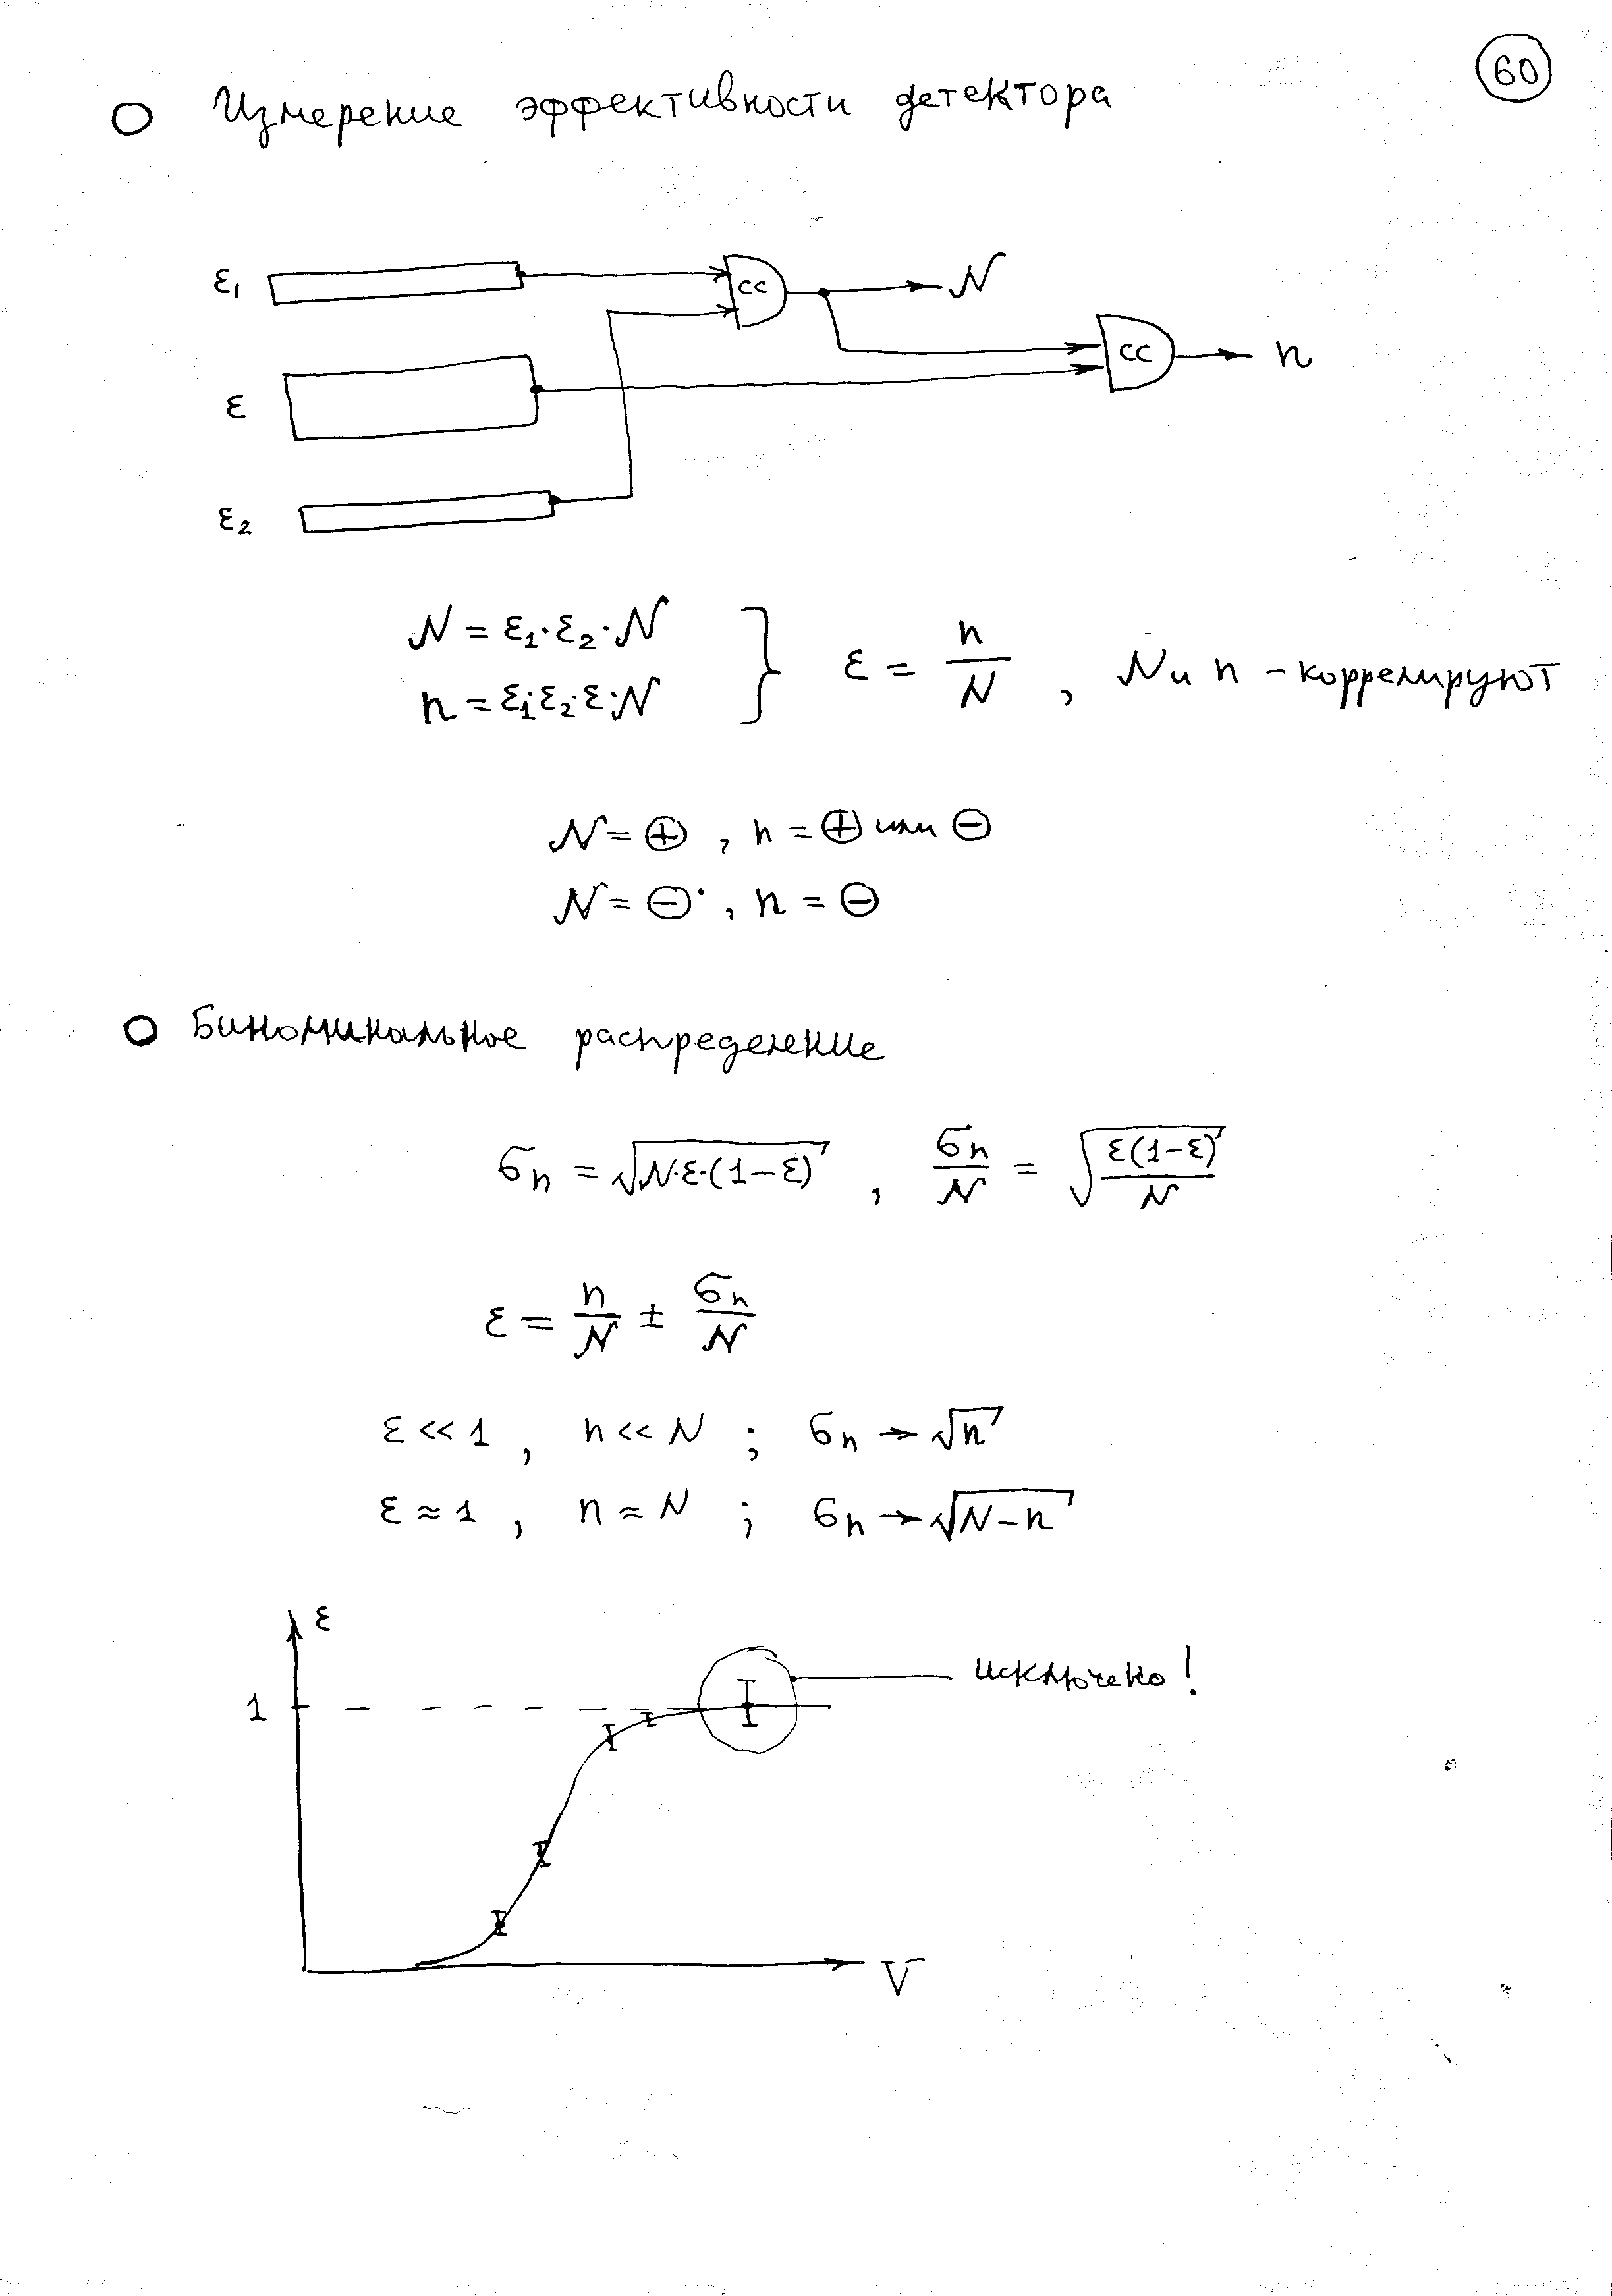 60
Измерение эффективности детектора
ε₁
cc
N
cc
n
ε
ε₂
N = ε₁·ε₂·N
n = ε₁·ε₂·ε·N
} ε = n/N , N и n – коррелируют
N = ⊕ , n = ⊕ или ⊖
N = ⊖ , n = ⊖
Биноминальное распределение
σₙ = √(N·ε·(1−ε)) , σₙ/N = √(ε(1−ε)/N)
ε = n/N ± σₙ/N
ε << 1 , n << N ; σₙ → √n
ε ≈ 1 , n ≈ N ; σₙ → √(N−n)
ε
исключено!
1
V